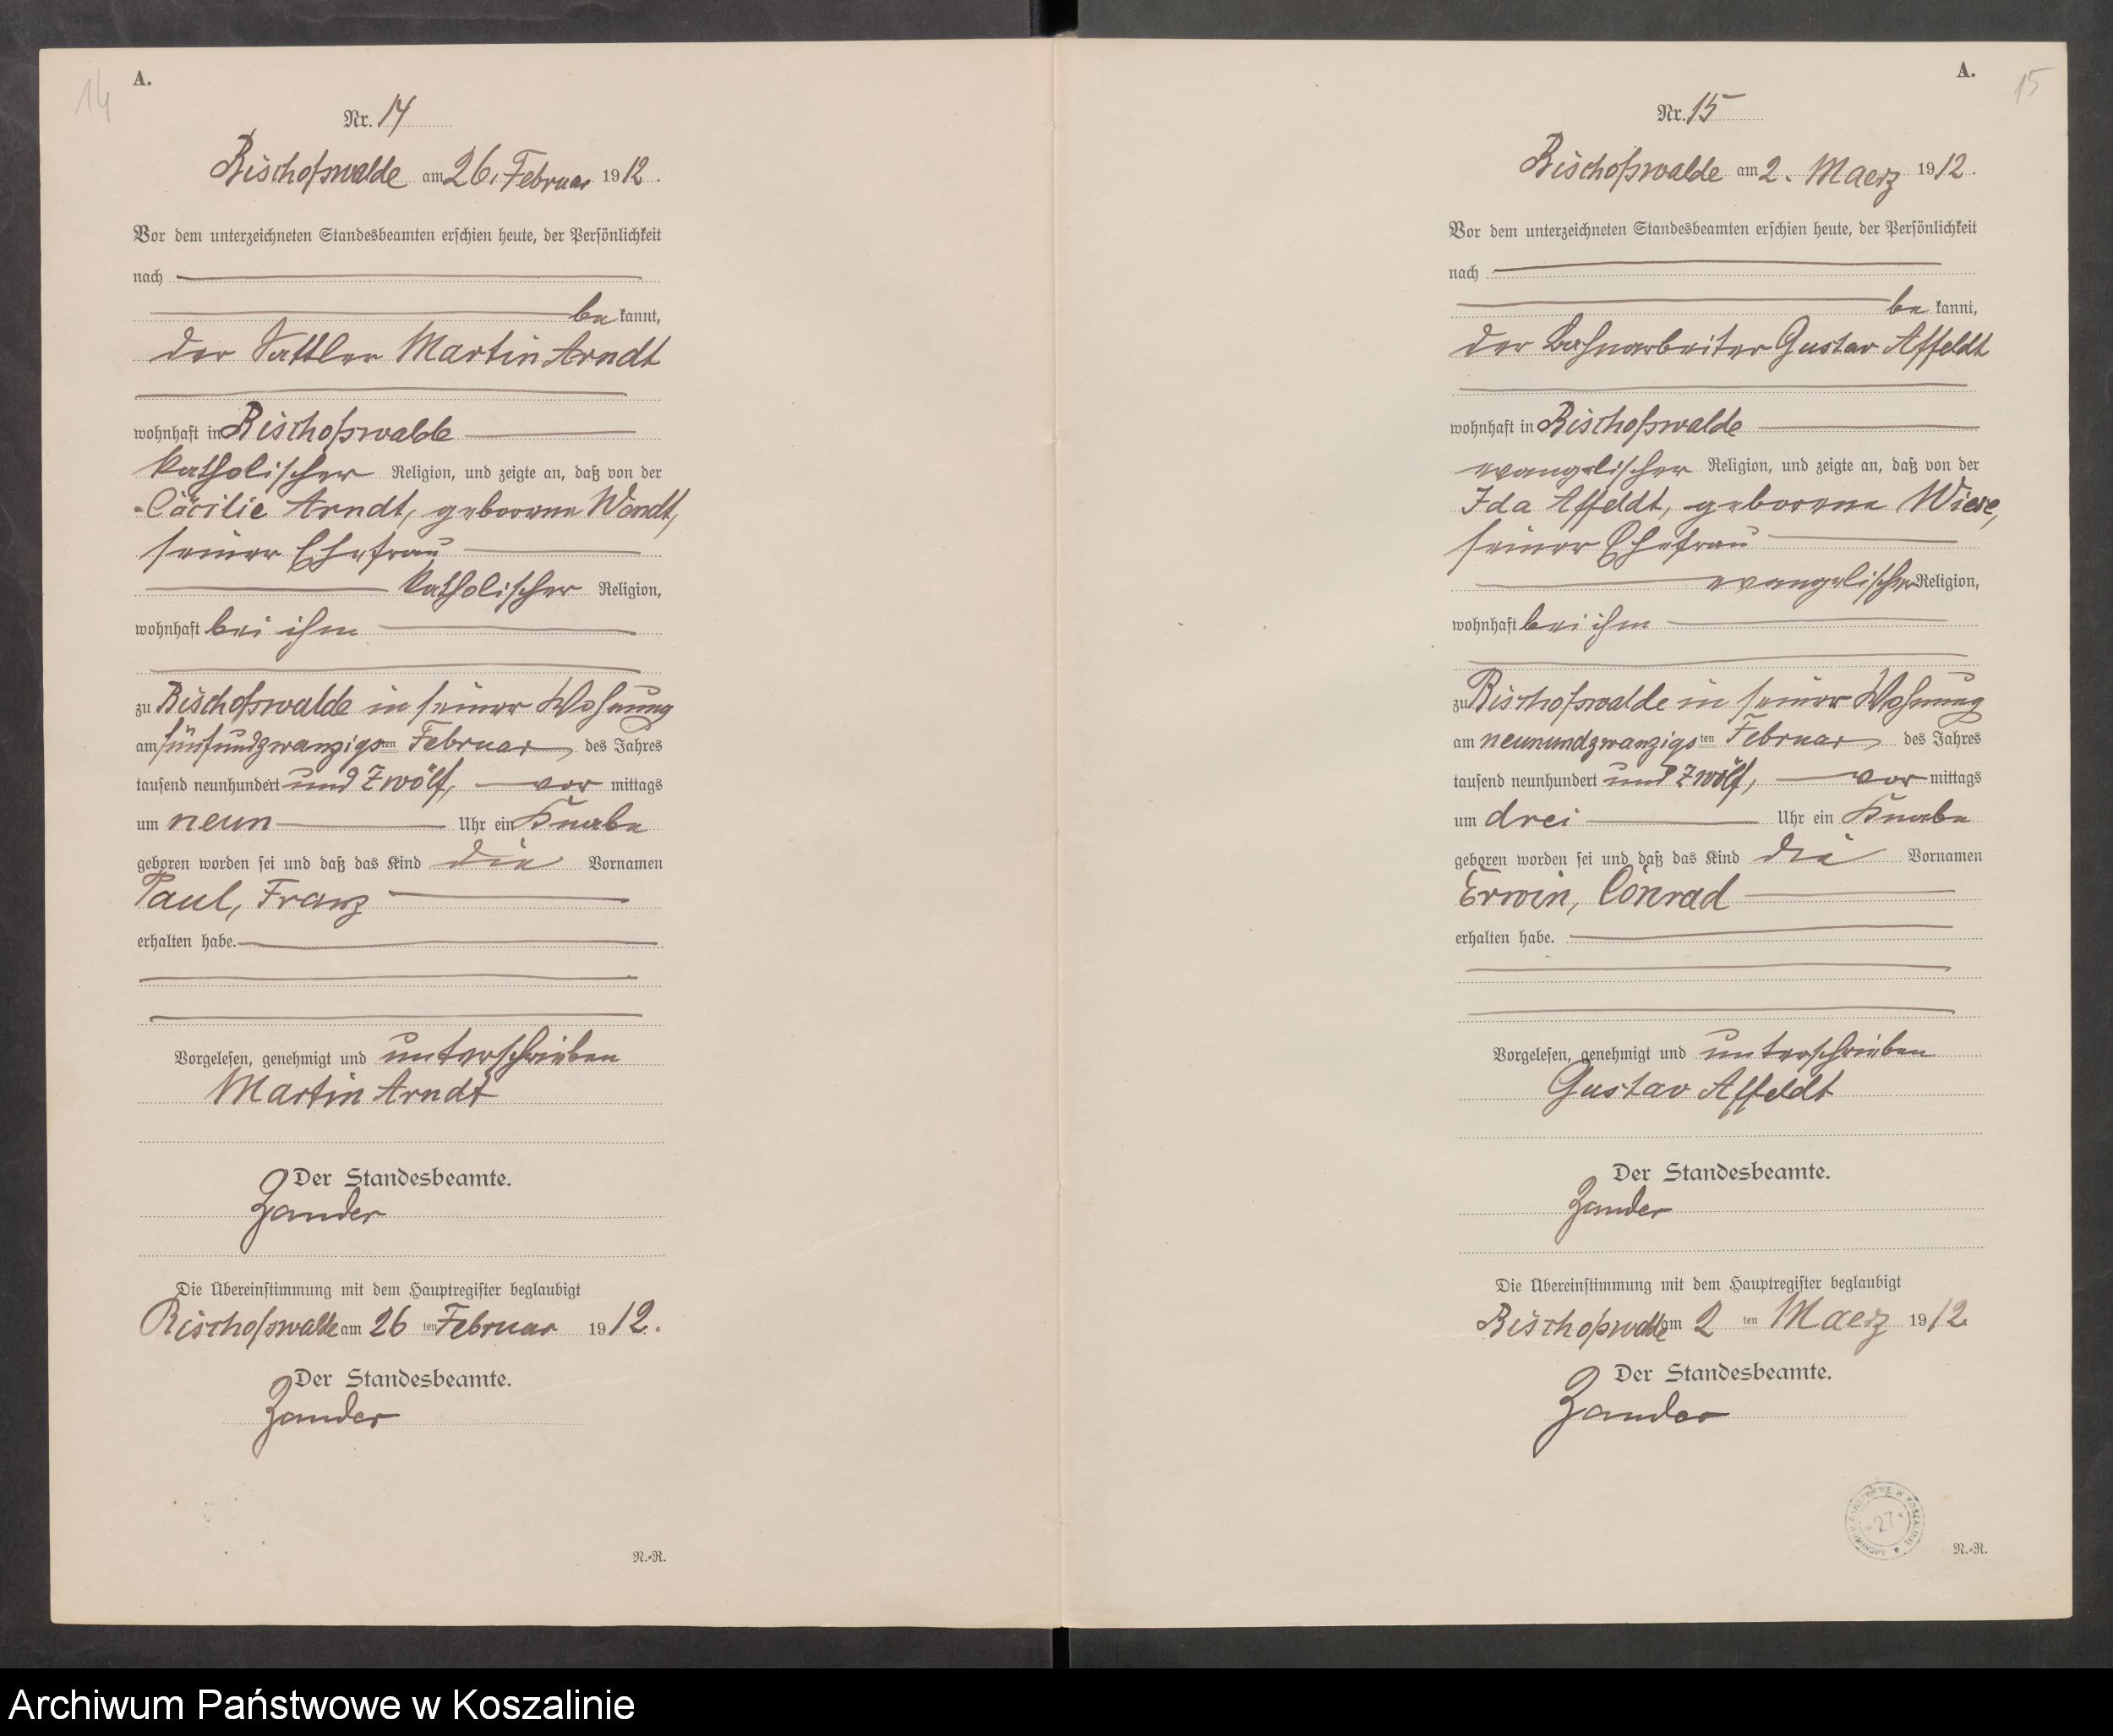 14
A.
Nr. 14
Bischofswalde am 26. Februar 1912.
Vor dem unterzeichneten Standesbeamten erschien heute, der Persönlichkeit
nach
be kannt,
der Sattler Martin Arndt
wohnhaft in Bischofswalde
katholischer Religion, und zeigte an, daß von der
Cäcilie Arndt, geborene Wendt,
seiner Ehefrau
katholischer Religion,
wohnhaft bei ihm
zu Bischofswalde in seiner Wohnung
am fünfundzwanzigsten Februar des Jahres
tausend neunhundert und Zwölf, vor mittags
um neun Uhr ein Knabe
geboren worden sei und daß das Kind die Vornamen
Paul, Franz
erhalten habe.
Vorgelesen, genehmigt und unterschrieben
Martin Arndt
Der Standesbeamte.
Zander
Die Übereinstimmung mit dem Hauptregister beglaubigt
Bischofswalde am 26 ten Februar 1912.
Der Standesbeamte.
Zander
N.=R.
A.
15
Nr. 15
Bischofswalde am 2. Maerz 1912.
Vor dem unterzeichneten Standesbeamten erschien heute, der Persönlichkeit
nach
be kannt,
der Bahnarbeiter Gustav Affeldt
wohnhaft in Bischofswalde
evangelischer Religion, und zeigte an, daß von der
Ida Affeldt, geborene Wiese,
seiner Ehefrau
evangelischer Religion,
wohnhaft bei ihm
zu Bischofswalde in seiner Wohnung
am neunundzwanzigsten Februar des Jahres
tausend neunhundert und Zwölf, vor mittags
um drei Uhr ein Knabe
geboren worden sei und daß das Kind die Vornamen
Erwin, Conrad
erhalten habe.
Vorgelesen, genehmigt und unterschrieben
Gustav Affeldt
Der Standesbeamte.
Zander
Die Übereinstimmung mit dem Hauptregister beglaubigt
Bischofswalde am 2 ten Maerz 1912.
Der Standesbeamte.
Zander
ARCHIWUM PAŃSTWOWE W KOSZALINIE
27
N.=R.
Archiwum Państwowe w Koszalinie